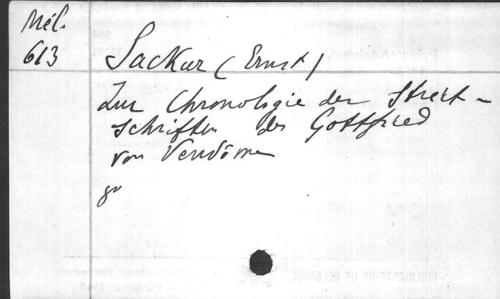 Mél.
613
Sackur (Ernst)
Zur Chronologie der Streit-
schriften des Gottfried
von Vendôme